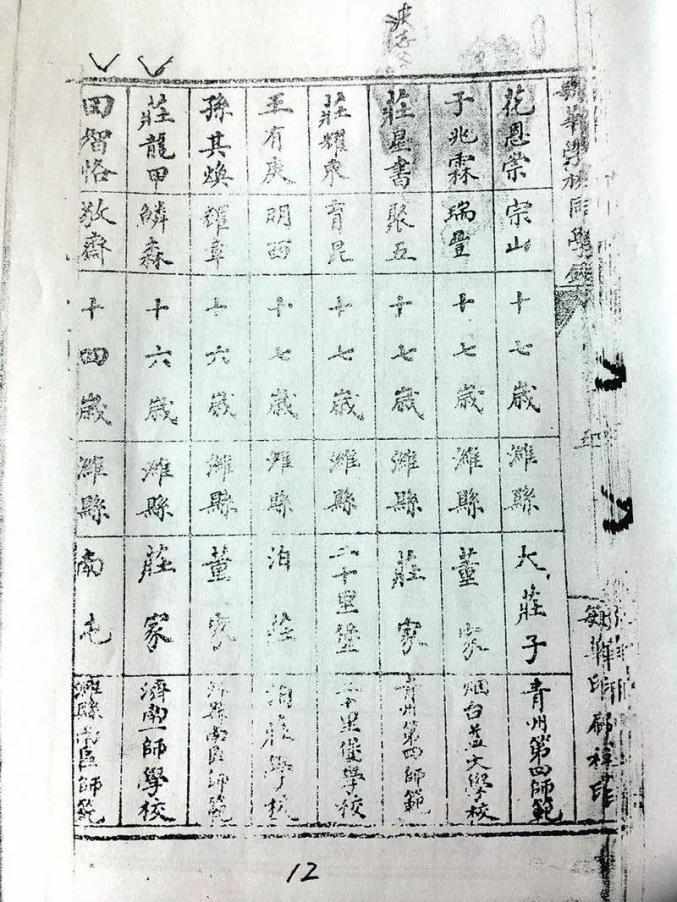 學校同學錄
花恩崇 宗山 十七歲 濰縣 大莊子 青州第四師範
于兆霖 瑞豐 十七歲 濰縣 董家 烟台益文學校
莊星書 聚五 十七歲 濰縣 莊家 青州第四師範
莊耀東 育昆 十七歲 濰縣 二十里堡 二十里堡學校
王有庚 明西 十七歲 濰縣 泊莊 泊莊學校
孫其煥 耀章 十六歲 濰縣 董家 濰縣南區師範
莊龍甲 鱗森 十六歲 濰縣 莊家 濟南一師學校
田智恪 敬齋 十四歲 濰縣 南屯 濰縣南區師範
12